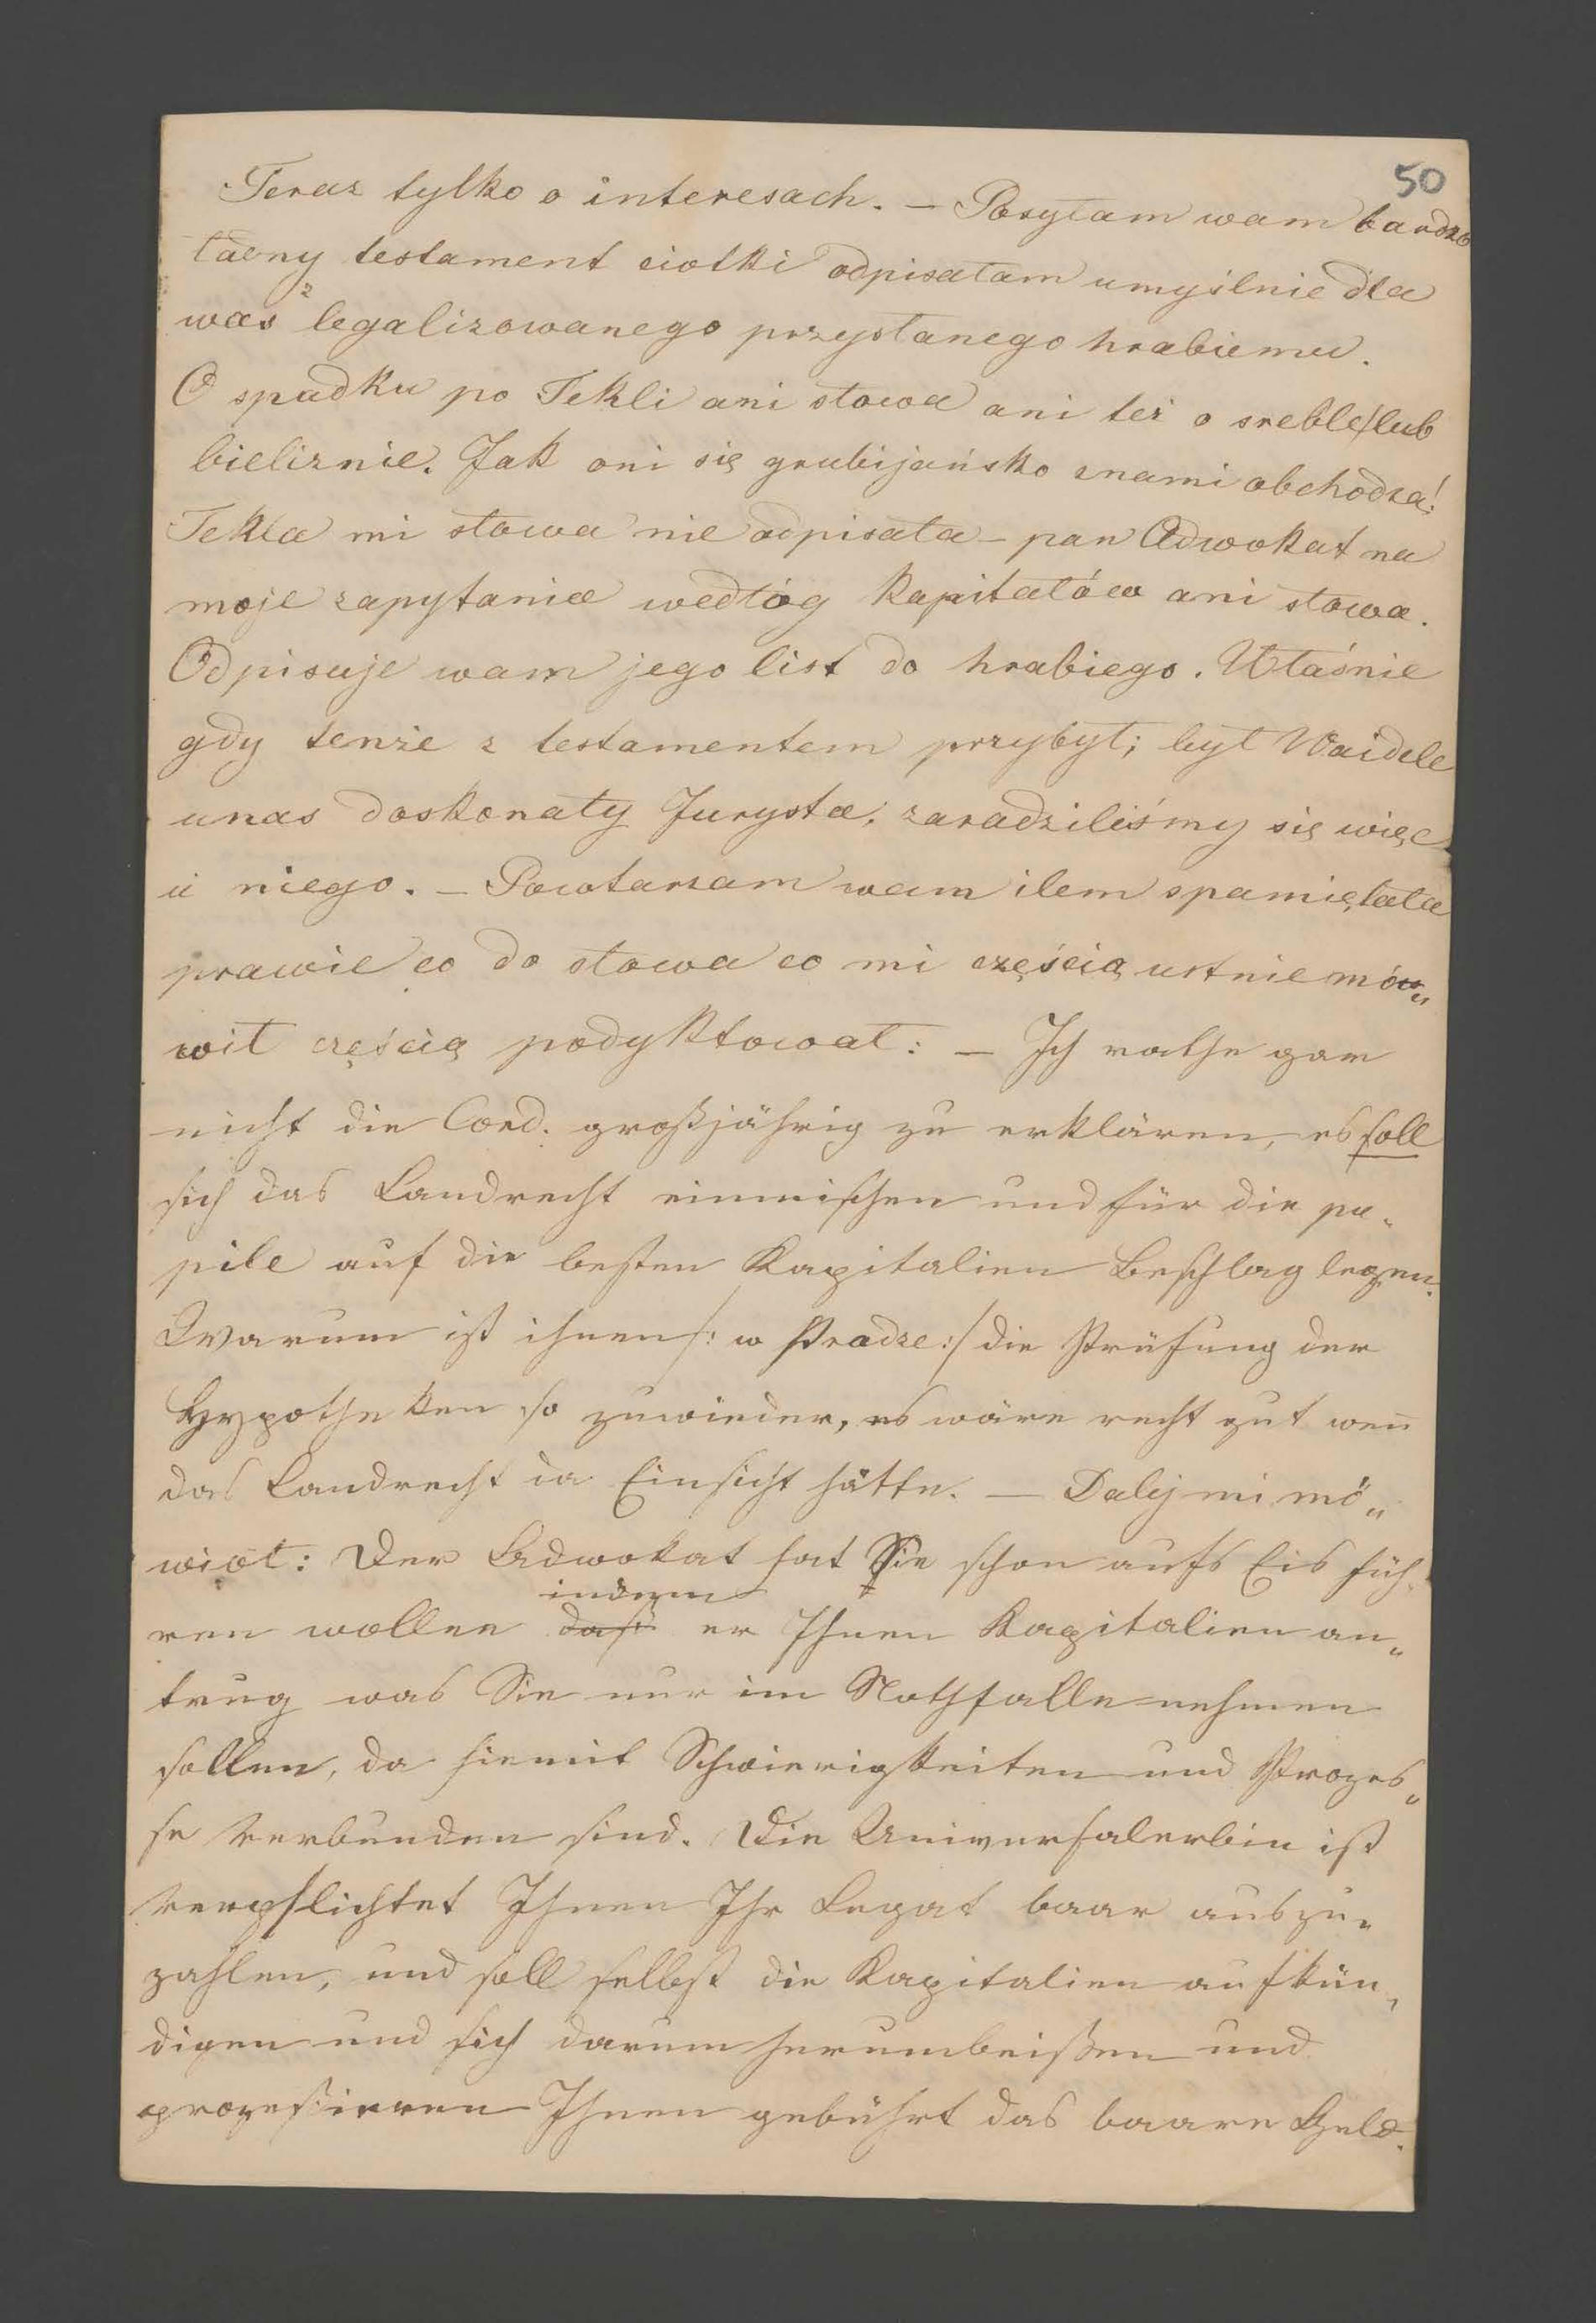 50
Teraz tylko o interesach. – Posyłam wam bardzo
ładny testament ciotki odpisałam umyślnie dla
was z legalizowanego przysłanego hrabiemu.
O spadku po Tekli ani słowa ani też o sreble/lub
bieliznie. Jak oni się grubijańsko znami obchodzą!
Tekla mi słowa nie odpisała – pan Adwokat na
moje zapytania wedłóg kapitałów ani słowa.
Odpisuje wam jego list do hrabiego. Właśnie
gdy tenże z testamentem przybył; był Waidele
unas doskonały Jurysta; zaradziliśmy się więc
u niego. – Powtarzam wam ilem spamiętała
prawie co do słowa co mi częścią ustnie mó„
wił częścią podyktował: – Ich rathe gar
nicht die Cord. großjährig zu erklären, es soll
sich das Landrecht einmischen und für die pu„
pile auf die besten Kapitalien Beschlag legen.
Warum ist ihnen /: w Pradze :/ die Prüfung der
Hypotheken so zuwieder, es wäre recht gut wen̄
das Landrecht da Einsicht hätte. — Dalej mi mó„
wiół: Der Adwokat hat Sie schon aufs Eis füh„
indem
ren wollen daß er Ihnen Kapitalien an„
trug was Sie nur im Nothfalle nehmen
sollen, da hiemit Schwierigkeiten und Prozes„
se verbunden sind. Die Universalerbin ist
verpflichtet Ihnen Ihr Legat baar auszu„
zahlen, und soll selbst die Kapitalien aufkün„
digen und sich darum herumbeißen und
prozeßieren Ihnen gebührt das baare Geld.